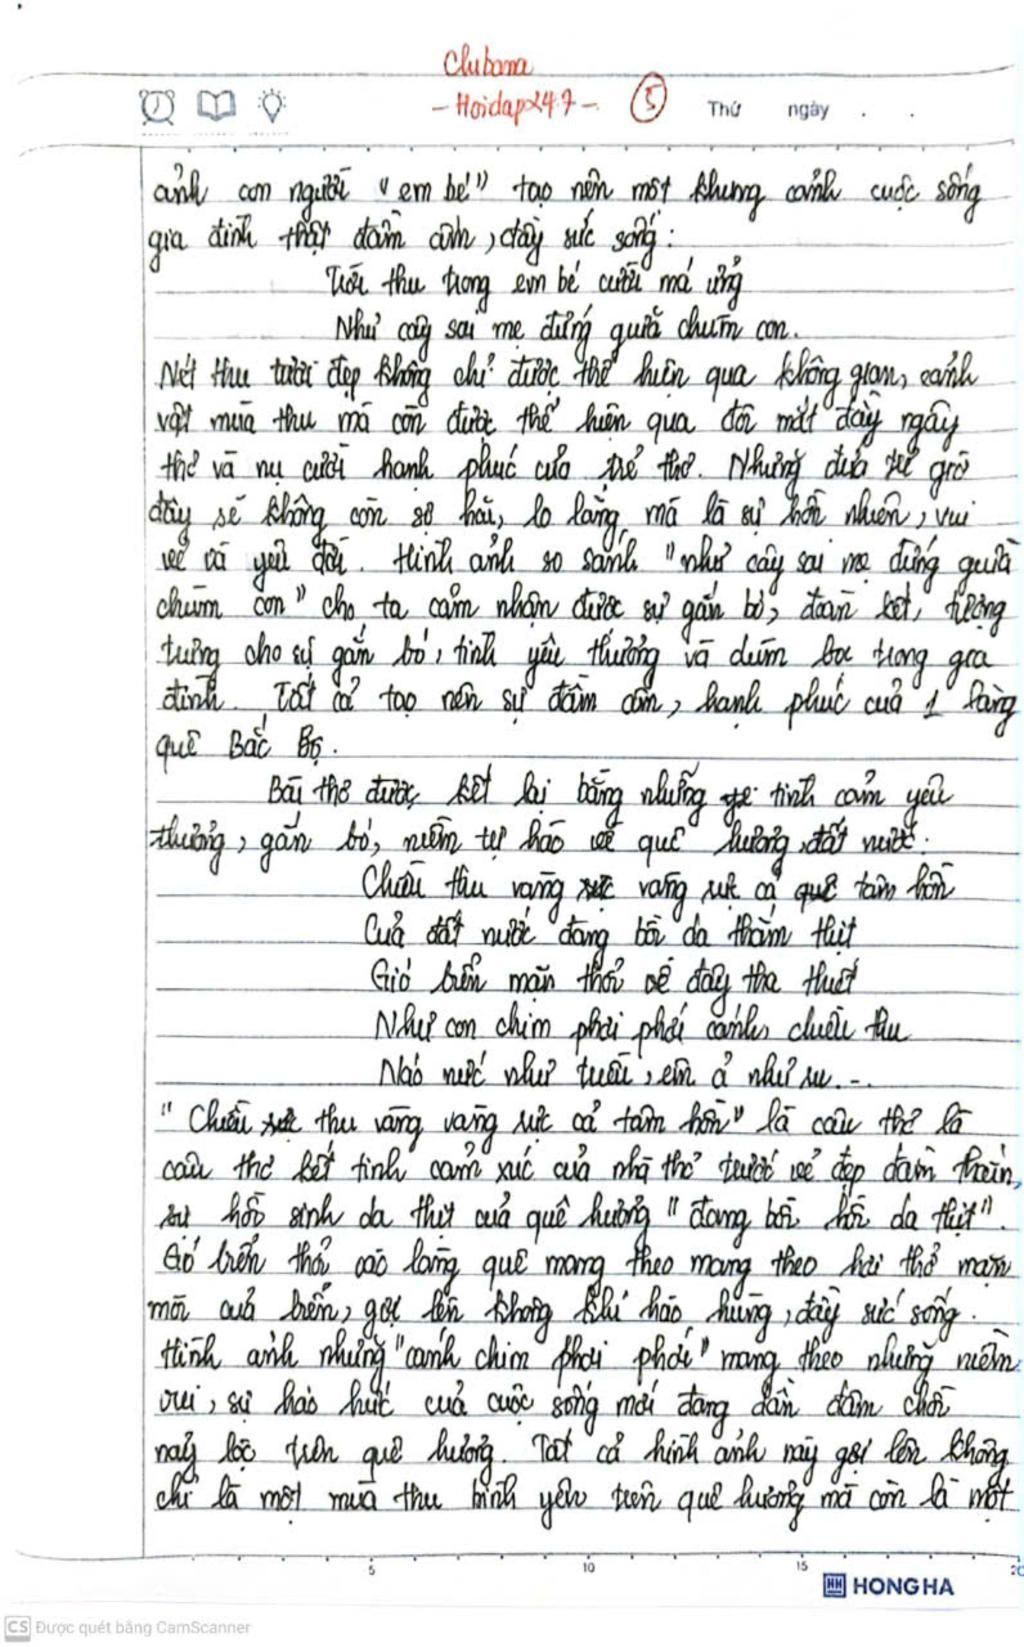 Clubana
- Hoidap247 - 5 Thứ ngày . .
ảnh con người "em bé" tạo nên một khung cảnh cuộc sống
gia đình thật đầm ấm, đầy sức sống:
Trời thu trong em bé cười má ửng
Như cây sai mẹ đứng giữa chùm con.
Nét thu tươi đẹp không chỉ được thể hiện qua không gian, cảnh
vật mùa thu mà còn được thể hiện qua đôi mắt đầy ngây
thơ và nụ cười hạnh phúc của trẻ thơ. Những đứa trẻ giờ
đây sẽ không còn sợ hãi, lo lắng mà là sự hồn nhiên, vui
vẻ và yêu đời. Hình ảnh so sánh "như cây sai mẹ đứng giữa
chùm con" cho ta cảm nhận được sự gắn bó, đoàn kết, tượng
trưng cho sự gắn bó, tình yêu thương và đùm bọc trong gia
đình. Tất cả tạo nên sự đầm ấm, hạnh phúc của 1 làng
quê Bắc Bộ.
Bài thơ được kết lại bằng những tình cảm yêu
thương, gắn bó, niềm tự hào về quê hương, đất nước:
Chiều thu vàng vàng rực cả tâm hồn
Của đất nước đang bồi da thắm thịt
Gió biển mặn thổi về đây tha thiết
Như con chim phơi phới cánh, chiều thu
Náo nức như tuổi, êm ả như ru...
"Chiều thu vàng vàng rực cả tâm hồn" là câu thơ là
câu thơ kết tinh cảm xúc của nhà thơ trước vẻ đẹp đằm thắm,
sự hồi sinh da thịt của quê hương "đang bồi hồi da thịt".
Gió biển thổi vào làng quê mang theo mang theo hơi thở mặn
mòi của biển, gợi lên không khí hào hùng, đầy sức sống.
Hình ảnh những "cánh chim phơi phới" mang theo những niềm
vui, sự háo hức của cuộc sống mới đang dần đâm chồi
nảy lộc trên quê hương. Tất cả hình ảnh này gợi lên không
chỉ là một mùa thu bình yên trên quê hương mà còn là một
5 10 15 20
HONG HA
CS Được quét bằng CamScanner